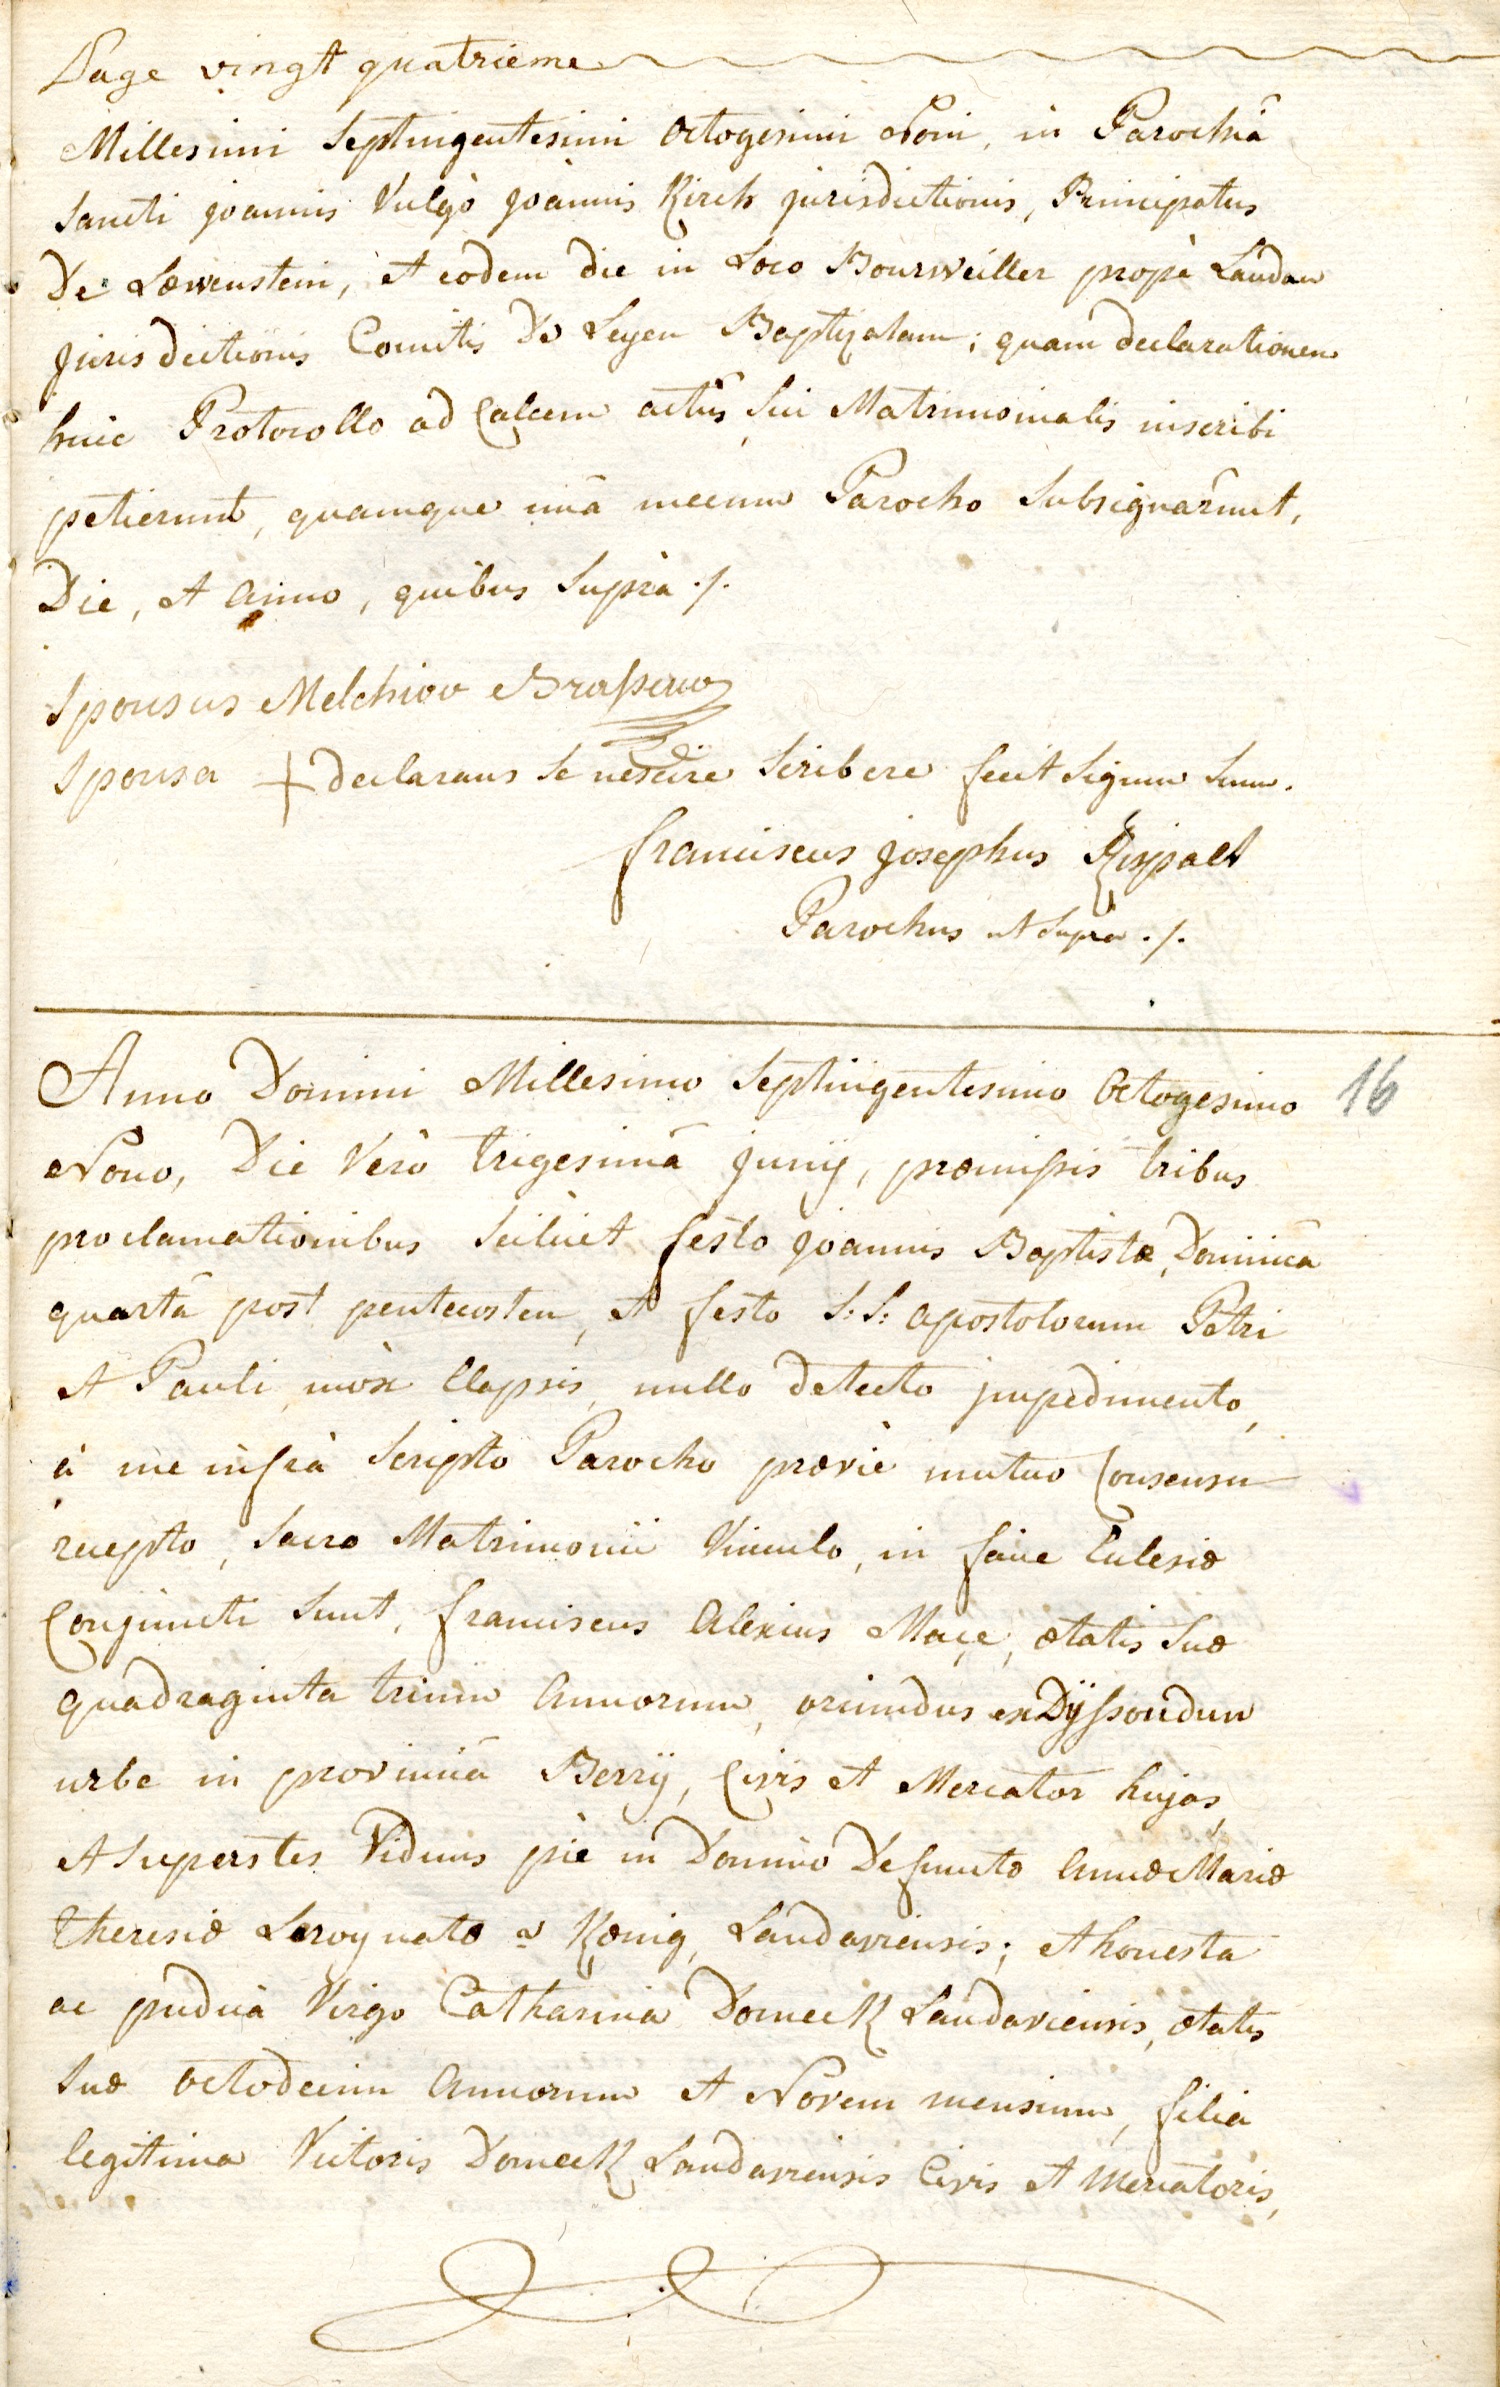 Page vingt quatrieme
Millesimi Septingentesimi Octogesimi Noni, in Parochiâ
Sancti joannis Vulgò joannis Kirch jurisdictionis, Principatus
De Lœwenstein, et eodem die in Loco Bourweiller propè Landau
jurisdictionis Comitis De Leyen Baptizatam; quam declarationem
huic Protocollo ad Calcem actûs Sui Matrimonialis inscribi
petierunt, quamque unâ mecum Parocho Subsignârunt,
Die, et anno, quibus Suprà ./.
Sponsus Melchior
Sponsa + declarans Se nescire Scribere fecit Signum Suum.
franciscus josephus Rispalt
Parochus ut Suprà ./.
Anno Domini Millesimo Septingentesimo Octogesimo 16
Nono, Die Verò trigesimâ junij, præmissis tribus
proclamationibus Scilicet festo joannis Baptistæ, Dominicâ
quartâ post pentecosten, et festo S: S: apostolorum Petri
et Pauli mòx Elapsis, nullo detecto jmpedimento,
à me infrà Scripto Parocho præviè mutuo Consensu
recepto, Sacro Matrimonii Vinculo, in facie Ecclesiæ
Conjuncti Sunt, franciscus Alexius Maçe, ætatis Suæ
quadraginta trium Annorum, oriundus ex Dÿssoudun
urbe in provinciâ Berrÿ, Civis et Mercator hujas,
et Superstes Viduus piè in Domino Defunctæ Annæ Mariæ
Theresiæ Leroy natæ a Kœnig, Landaviensis; et honesta
ac pudica Virgo Catharina Domeck Landaviensis, ætatis
Suæ octodecim Annorum et Novem mensium, filia
legitima Victoris Domeck Landaviensis Civis et Mercatoris,